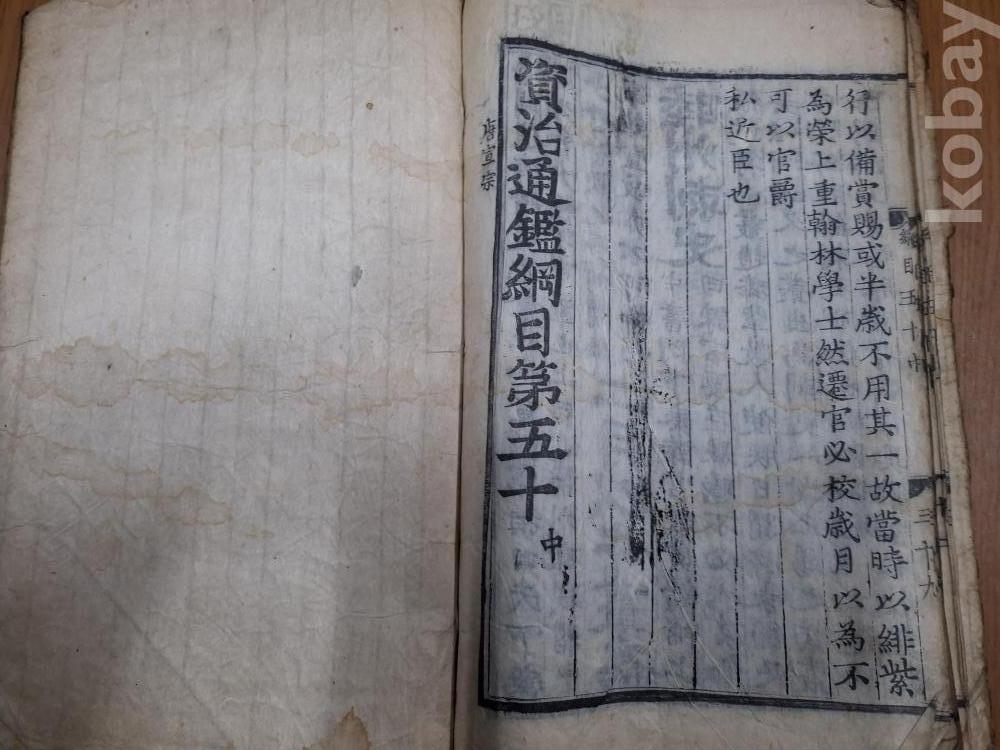 行以備賞賜或半歲不用其一故當時以緋紫
為榮上重翰林學士然遷官必校歲月以為不
可以官爵
私近臣也
資治通鑑綱目第五十 中
唐宣宗
綱目五十中
三十九
kobay